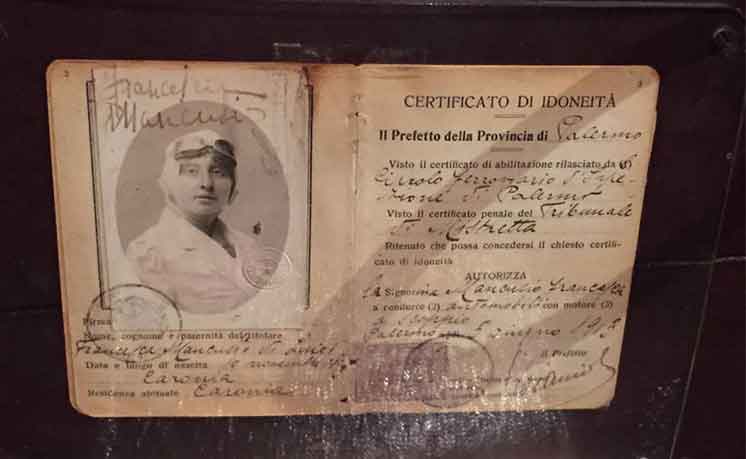 2
Francesca
Mancuso
Firma
Nome, cognome e paternità del titolare
Francesca Mancuso di
Data e luogo di nascita
Caronia
Residenza abituale Caronia
3
CERTIFICATO DI IDONEITÀ
Il Prefetto della Provincia di Palermo
Visto il certificato di abilitazione rilasciato dal
Circolo ferroviario d'Ispe-
zione di Palermo
Visto il certificato penale del Tribunale
di Mistretta
Ritenuto che possa concedersi il chiesto certifi-
cato di idoneità
AUTORIZZA
la Signorina Mancuso Francesca
a condurre (2) automobili con motore (3)
a scoppio
Palermo giugno
Il Prefetto